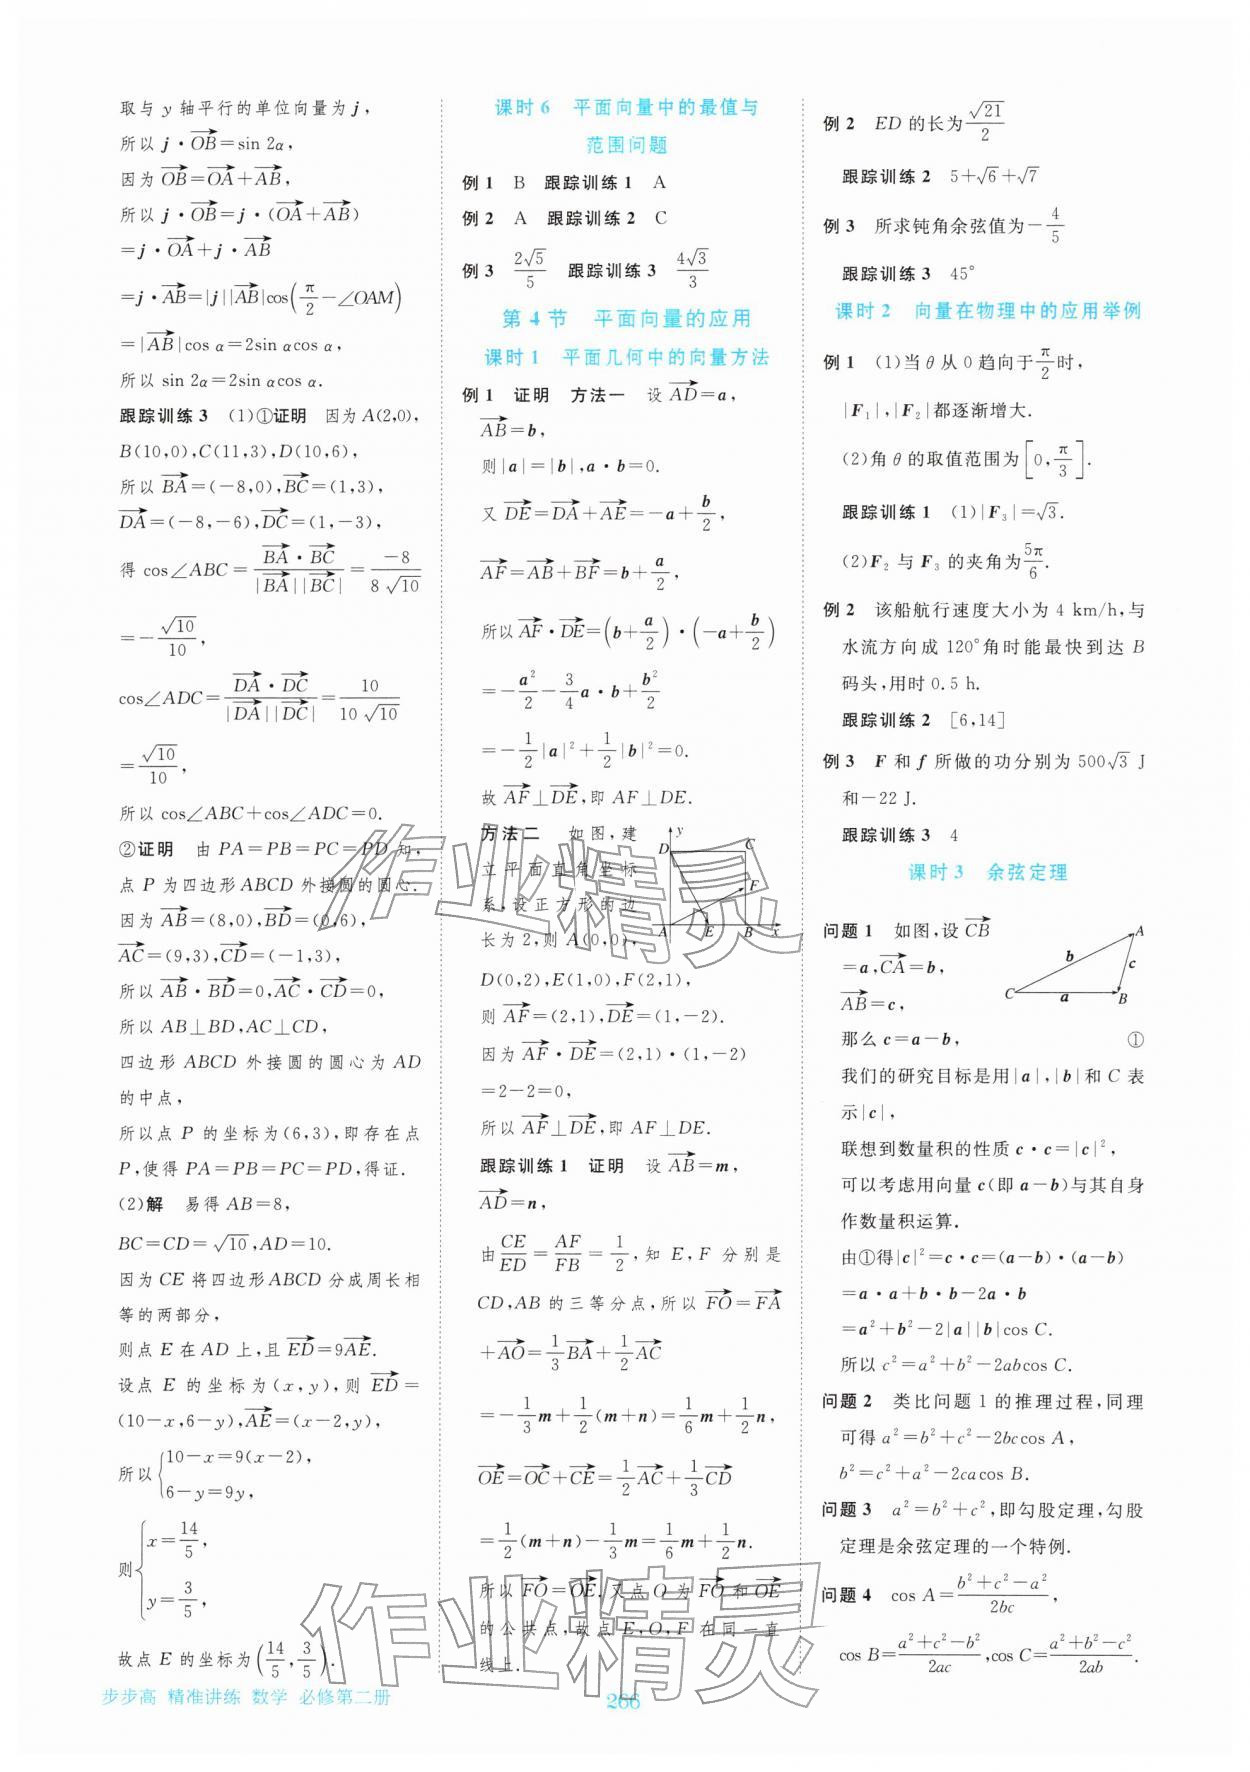 取与 y 轴平行的单位向量为 j，
所以 j·$\overrightarrow{OB}$=sin 2α，
因为 $\overrightarrow{OB}$=$\overrightarrow{OA}$+$\overrightarrow{AB}$，
所以 j·$\overrightarrow{OB}$=j·($\overrightarrow{OA}$+$\overrightarrow{AB}$)
=j·$\overrightarrow{OA}$+j·$\overrightarrow{AB}$
=j·$\overrightarrow{AB}$=|j||$\overrightarrow{AB}$|cos($\frac{π}{2}$-∠OAM)
=|$\overrightarrow{AB}$|cos α=2sin αcos α.
所以 sin 2α=2sin αcos α.
跟踪训练 3 (1)①证明 因为 A(2,0)，
B(10,0),C(11,3),D(10,6)，
所以 $\overrightarrow{BA}$=(-8,0),$\overrightarrow{BC}$=(1,3)，
$\overrightarrow{DA}$=(-8,-6),$\overrightarrow{DC}$=(1,-3)，
得 cos∠ABC=$\frac{\overrightarrow{BA}·\overrightarrow{BC}}{|\overrightarrow{BA}||\overrightarrow{BC}|}$=$\frac{-8}{8\sqrt{10}}$
=-$\frac{\sqrt{10}}{10}$，
cos∠ADC=$\frac{\overrightarrow{DA}·\overrightarrow{DC}}{|\overrightarrow{DA}||\overrightarrow{DC}|}$=$\frac{10}{10\sqrt{10}}$
=$\frac{\sqrt{10}}{10}$，
所以 cos∠ABC+cos∠ADC=0.
②证明 由 PA=PB=PC=PD 知，
点 P 为四边形 ABCD 外接圆的圆心.
因为 $\overrightarrow{AB}$=(8,0),$\overrightarrow{BD}$=(0,6)，
$\overrightarrow{AC}$=(9,3),$\overrightarrow{CD}$=(-1,3)，
所以 $\overrightarrow{AB}$·$\overrightarrow{BD}$=0,$\overrightarrow{AC}$·$\overrightarrow{CD}$=0，
所以 AB⊥BD,AC⊥CD，
四边形 ABCD 外接圆的圆心为 AD
的中点，
所以点 P 的坐标为(6,3),即存在点
P,使得 PA=PB=PC=PD,得证.
(2)解 易得 AB=8，
BC=CD=$\sqrt{10}$,AD=10.
因为 CE 将四边形 ABCD 分成周长相
等的两部分，
则点 E 在 AD 上,且 $\overrightarrow{ED}$=9$\overrightarrow{AE}$.
设点 E 的坐标为(x,y),则 $\overrightarrow{ED}$=
(10-x,6-y),$\overrightarrow{AE}$=(x-2,y)，
所以 $\begin{cases}10-x=9(x-2),\\6-y=9y,\end{cases}$
则 $\begin{cases}x=\frac{14}{5},\\y=\frac{3}{5},\end{cases}$
故点 E 的坐标为($\frac{14}{5}$,$\frac{3}{5}$).
课时 6 平面向量中的最值与
范围问题
例 1 B 跟踪训练 1 A
例 2 A 跟踪训练 2 C
例 3 $\frac{2\sqrt{5}}{5}$ 跟踪训练 3 $\frac{4\sqrt{3}}{3}$
第 4 节 平面向量的应用
课时 1 平面几何中的向量方法
例 1 证明 方法一 设 $\overrightarrow{AD}$=a，
$\overrightarrow{AB}$=b，
则|a|=|b|,a·b=0.
又 $\overrightarrow{DE}$=$\overrightarrow{DA}$+$\overrightarrow{AE}$=-a+$\frac{b}{2}$，
$\overrightarrow{AF}$=$\overrightarrow{AB}$+$\overrightarrow{BF}$=b+$\frac{a}{2}$，
所以 $\overrightarrow{AF}$·$\overrightarrow{DE}$=(b+$\frac{a}{2}$)·(-a+$\frac{b}{2}$)
=-$\frac{a^2}{2}$-$\frac{3}{4}$a·b+$\frac{b^2}{2}$
=-$\frac{1}{2}$|a|²+$\frac{1}{2}$|b|²=0.
故 $\overrightarrow{AF}$⊥$\overrightarrow{DE}$,即 AF⊥DE.
方法二 如图,建
立平面直角坐标
系,设正方形的边
长为 2,则 A(0,0)，
y D C F A E B x
D(0,2),E(1,0),F(2,1)，
则 $\overrightarrow{AF}$=(2,1),$\overrightarrow{DE}$=(1,-2).
因为 $\overrightarrow{AF}$·$\overrightarrow{DE}$=(2,1)·(1,-2)
=2-2=0，
所以 $\overrightarrow{AF}$⊥$\overrightarrow{DE}$,即 AF⊥DE.
跟踪训练 1 证明 设 $\overrightarrow{AB}$=m，
$\overrightarrow{AD}$=n，
由 $\frac{CE}{ED}$=$\frac{AF}{FB}$=$\frac{1}{2}$,知 E,F 分别是
CD,AB 的三等分点,所以 $\overrightarrow{FO}$=$\overrightarrow{FA}$
+$\overrightarrow{AO}$=$\frac{1}{3}$$\overrightarrow{BA}$+$\frac{1}{2}$$\overrightarrow{AC}$
=-$\frac{1}{3}$m+$\frac{1}{2}$(m+n)=$\frac{1}{6}$m+$\frac{1}{2}$n，
$\overrightarrow{OE}$=$\overrightarrow{OC}$+$\overrightarrow{CE}$=$\frac{1}{2}$$\overrightarrow{AC}$+$\frac{1}{3}$$\overrightarrow{CD}$
=$\frac{1}{2}$(m+n)-$\frac{1}{3}$m=$\frac{1}{6}$m+$\frac{1}{2}$n.
所以 $\overrightarrow{FO}$=$\overrightarrow{OE}$.又点 O 为 $\overrightarrow{FO}$ 和 $\overrightarrow{OE}$
的公共点,故点 E,O,F 在同一直
线上.
例 2 ED 的长为$\frac{\sqrt{21}}{2}$
跟踪训练 2 5+$\sqrt{6}$+$\sqrt{7}$
例 3 所求钝角余弦值为-$\frac{4}{5}$
跟踪训练 3 45°
课时 2 向量在物理中的应用举例
例 1 (1)当 θ 从 0 趋向于$\frac{π}{2}$时，
|F₁|,|F₂|都逐渐增大.
(2)角 θ 的取值范围为[0,$\frac{π}{3}$].
跟踪训练 1 (1)|F₃|=$\sqrt{3}$.
(2)F₂ 与 F₃ 的夹角为$\frac{5π}{6}$.
例 2 该船航行速度大小为 4 km/h,与
水流方向成 120°角时能最快到达 B
码头,用时 0.5 h.
跟踪训练 2 [6,14]
例 3 F 和 f 所做的功分别为 500$\sqrt{3}$ J
和-22 J.
跟踪训练 3 4
课时 3 余弦定理
问题 1 如图,设 $\overrightarrow{CB}$
=a,$\overrightarrow{CA}$=b，
$\overrightarrow{AB}$=c，
A b c C a B
那么 c=a-b， ①
我们的研究目标是用|a|,|b|和 C 表
示|c|，
联想到数量积的性质 c·c=|c|²，
可以考虑用向量 c(即 a-b)与其自身
作数量积运算.
由①得|c|²=c·c=(a-b)·(a-b)
=a·a+b·b-2a·b
=a²+b²-2|a||b|cos C.
所以 c²=a²+b²-2abcos C.
问题 2 类比问题 1 的推理过程,同理
可得 a²=b²+c²-2bccos A，
b²=c²+a²-2cacos B.
问题 3 a²=b²+c²,即勾股定理,勾股
定理是余弦定理的一个特例.
问题 4 cos A=$\frac{b²+c²-a²}{2bc}$，
cos B=$\frac{a²+c²-b²}{2ac}$,cos C=$\frac{a²+b²-c²}{2ab}$.
步步高 精准讲练 数学 必修第二册
266
作业精灵
作业精灵